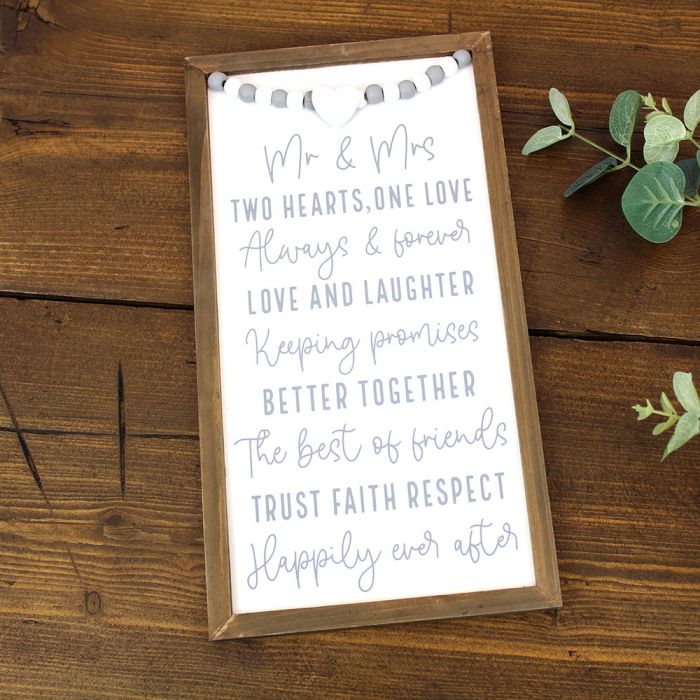 Mr & Mrs
TWO HEARTS, ONE LOVE
Always & forever
LOVE AND LAUGHTER
Keeping promises
BETTER TOGETHER
The best of friends
TRUST FAITH RESPECT
Happily ever after